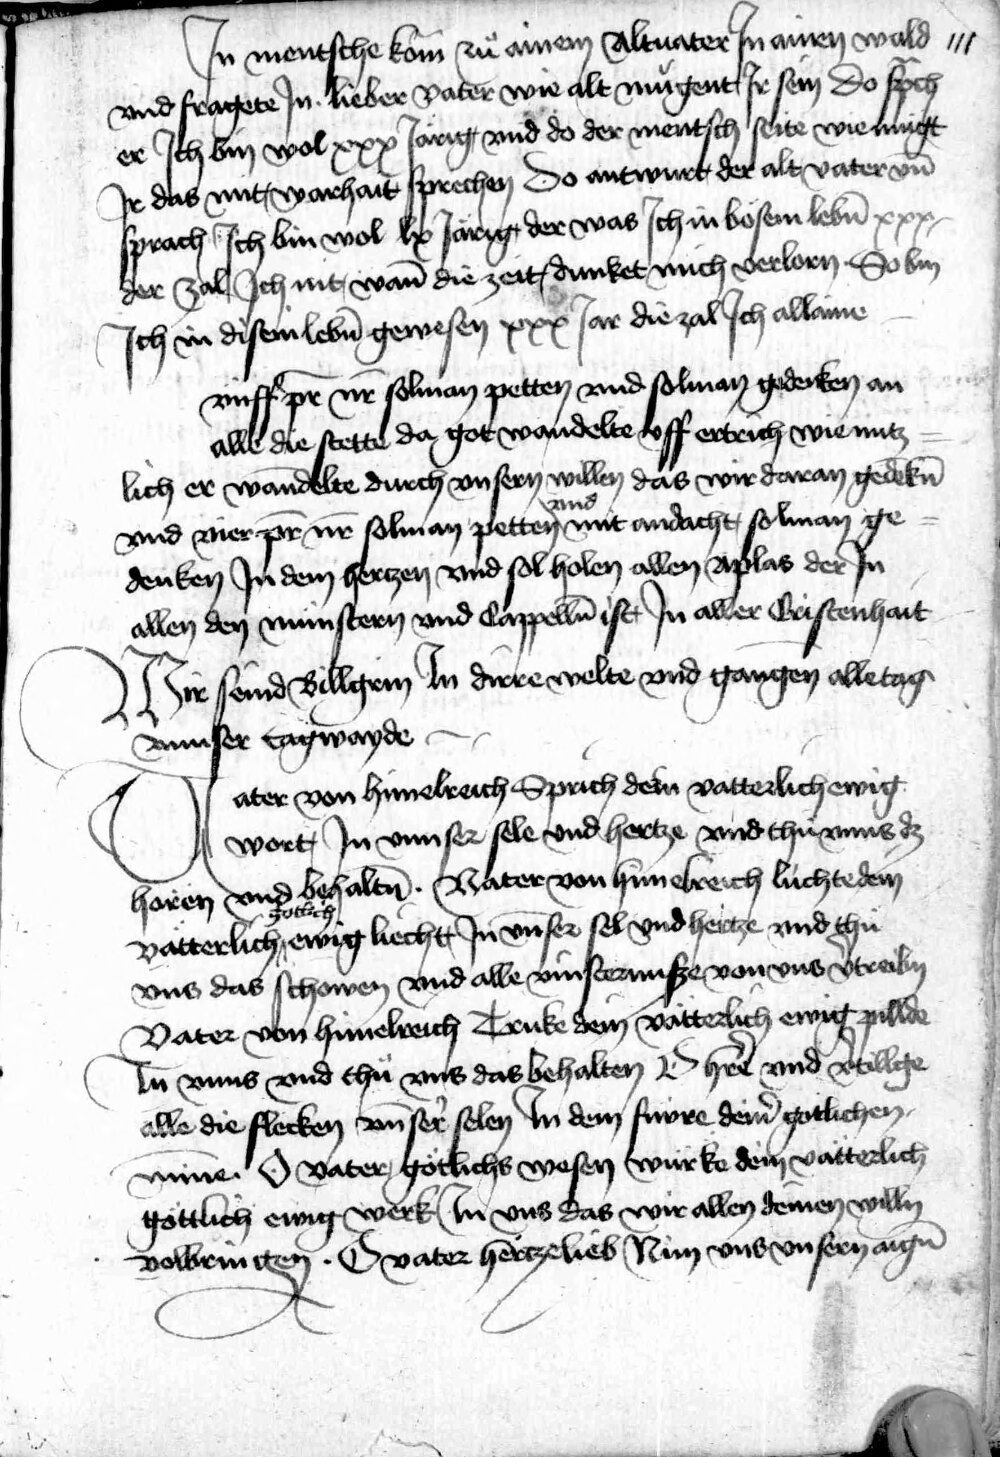 In mentsche kom zuͦ ainem Altuater In ainen wald 111
vnd fragete In. lieber vater wie alt muͤgent Ir sein Do spͣch
er Ich bin wol xxx Järig vnd do der mentsch seite wie mugt
Ir das mit warhait sprechen Do antwurt der alt vater vn̄
sprach Ich bin wol lx Järig der was Ich in bösem lebn̄ xxx
der zal Ich nit wan̄ die zeit dunket mich verlorn So bin
Ich in disem lebn̄ gewesen xxx Jar die zal Ich allaine
vnff pr̄ nr̄ solman petten vnd solman gedenken an
alle die stette da got wandelte vff ertrich wie nutz =
lich er wandelte durch vnsern willen das wir daran gedēkn̄
vnd vier pr̄ nr̄ solman petten vnd mit andacht solman ge =
denken In dem hertzen vnd sol holen allen Aplas der In
allen den münstern vnd Cappelln̄ ist In aller Cristenhait
Wir seind Billgrin In dirre welte vnd gangen alle tag
vnnser tagwayde
Vater von himelreich Sprich dein vatterlich ewig
wort In vnnser sele vnd hertze vnd thů vnns dz
horen vnd behaltn̄. Vater von himelreich lúchte dein
götlich
vätterlich ewig liecht In vnser sel vnd hertze vnd thů
vns das schowen vnd alle vinsternusze von vns v̓treibn
Vater von himelreich Truke dein vätterlich ewig pillde
In vnns vnd thuͦ vns das behalten O hre̓ vnd v̓tillge
alle die flecken vnser̓ selen In dem fúre dein̓ gotlichen
mine. O vater götlichs wesen würke dein vätterlich
göttlich ewig werk In vns das wir allen deinen willn
volbringen. O vater hertzelieb Nim vns vnsern aign̄